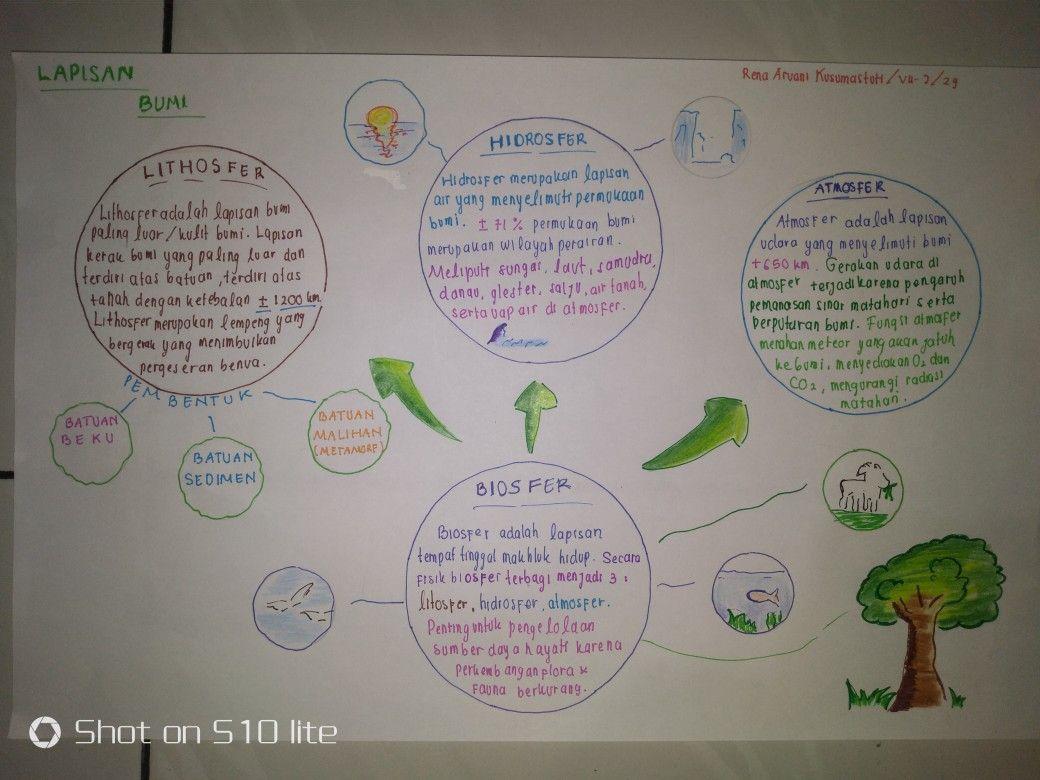 LAPISAN
BUMI
Rena Arvani Kusumastuti/VII-2/29
LITHOSFER
Lithosfer adalah lapisan bumi
paling luar/kulit bumi. Lapisan
kerak bumi yang paling luar dan
terdiri atas batuan, terdiri atas
tanah dengan ketebalan ± 1200 km.
Lithosfer merupakan lempeng yang
bergerak yang menimbulkan
pergeseran benua.
PEMBENTUK
BATUAN
BEKU
BATUAN
SEDIMEN
BATUAN
MALIHAN
(METAMORF)
HIDROSFER
Hidrosfer merupakan lapisan
air yang menyelimuti permukaan
bumi. ± 71 % permukaan bumi
merupakan wilayah perairan.
Meliputi sungai, laut, samudra,
danau, gletser, salju, air tanah,
serta uap air di atmosfer.
ATMOSFER
Atmosfer adalah lapisan
udara yang menyelimuti bumi
+650 km. Gerakan udara di
atmosfer terjadi karena pengaruh
pemanasan sinar matahari serta
perputaran bumi. Fungsi atmosfer
menahan meteor yang akan jatuh
ke bumi, menyediakan O2 dan
CO2, mengurangi radiasi
matahari.
BIOSFER
Biosfer adalah lapisan
tempat tinggal makhluk hidup. Secara
fisik biosfer terbagi menjadi 3 :
litosfer, hidrosfer, atmosfer.
Penting untuk pengelolaan
sumber daya hayati karena
perkembangan flora &
fauna berkurang.
Shot on S10 lite